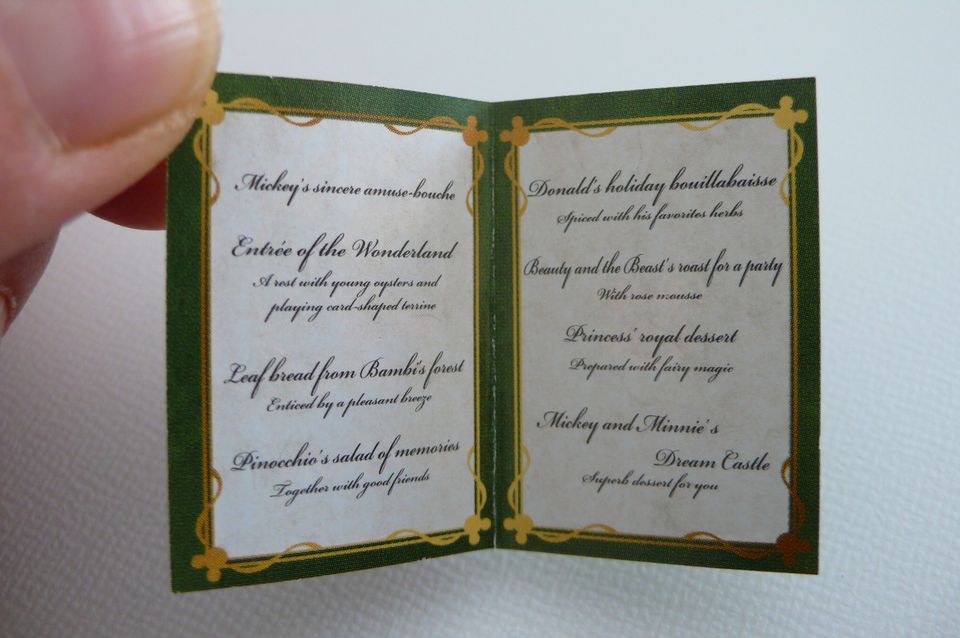 Mickey's sincere amuse-bouche
Entrée of the Wonderland
A rest with young oysters and
playing card-shaped terrine
Leaf bread from Bambi's forest
Enticed by a pleasant breeze
Pinocchio's salad of memories
Together with good friends
Donald's holiday bouillabaisse
Spiced with his favorites herbs
Beauty and the Beast's roast for a party
With rose mousse
Princess' royal dessert
Prepared with fairy magic
Mickey and Minnie's
Dream Castle
Superb dessert for you